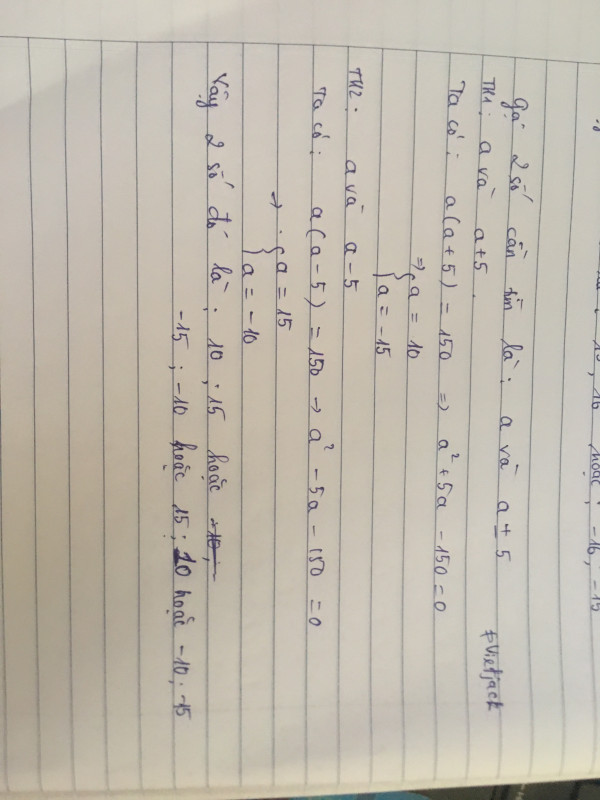 10, 16 hoặc : -16 ; -15
Gọi 2 số cần tìm là : a và a ± 5
TH1 : a và a+5. #Vietjack
Ta có : a(a+5) = 150 => a² + 5a - 150 = 0
=> { a = 10
{ a = -15
TH2 : a và a-5
Ta có : a(a-5) = 150 → a² - 5a - 150 = 0
→ { a = 15
{ a = -10
Vậy 2 số đó là : 10 ; 15 hoặc -10 ;
-15 ; -10 hoặc 15 ; 10 hoặc -10 ; -15